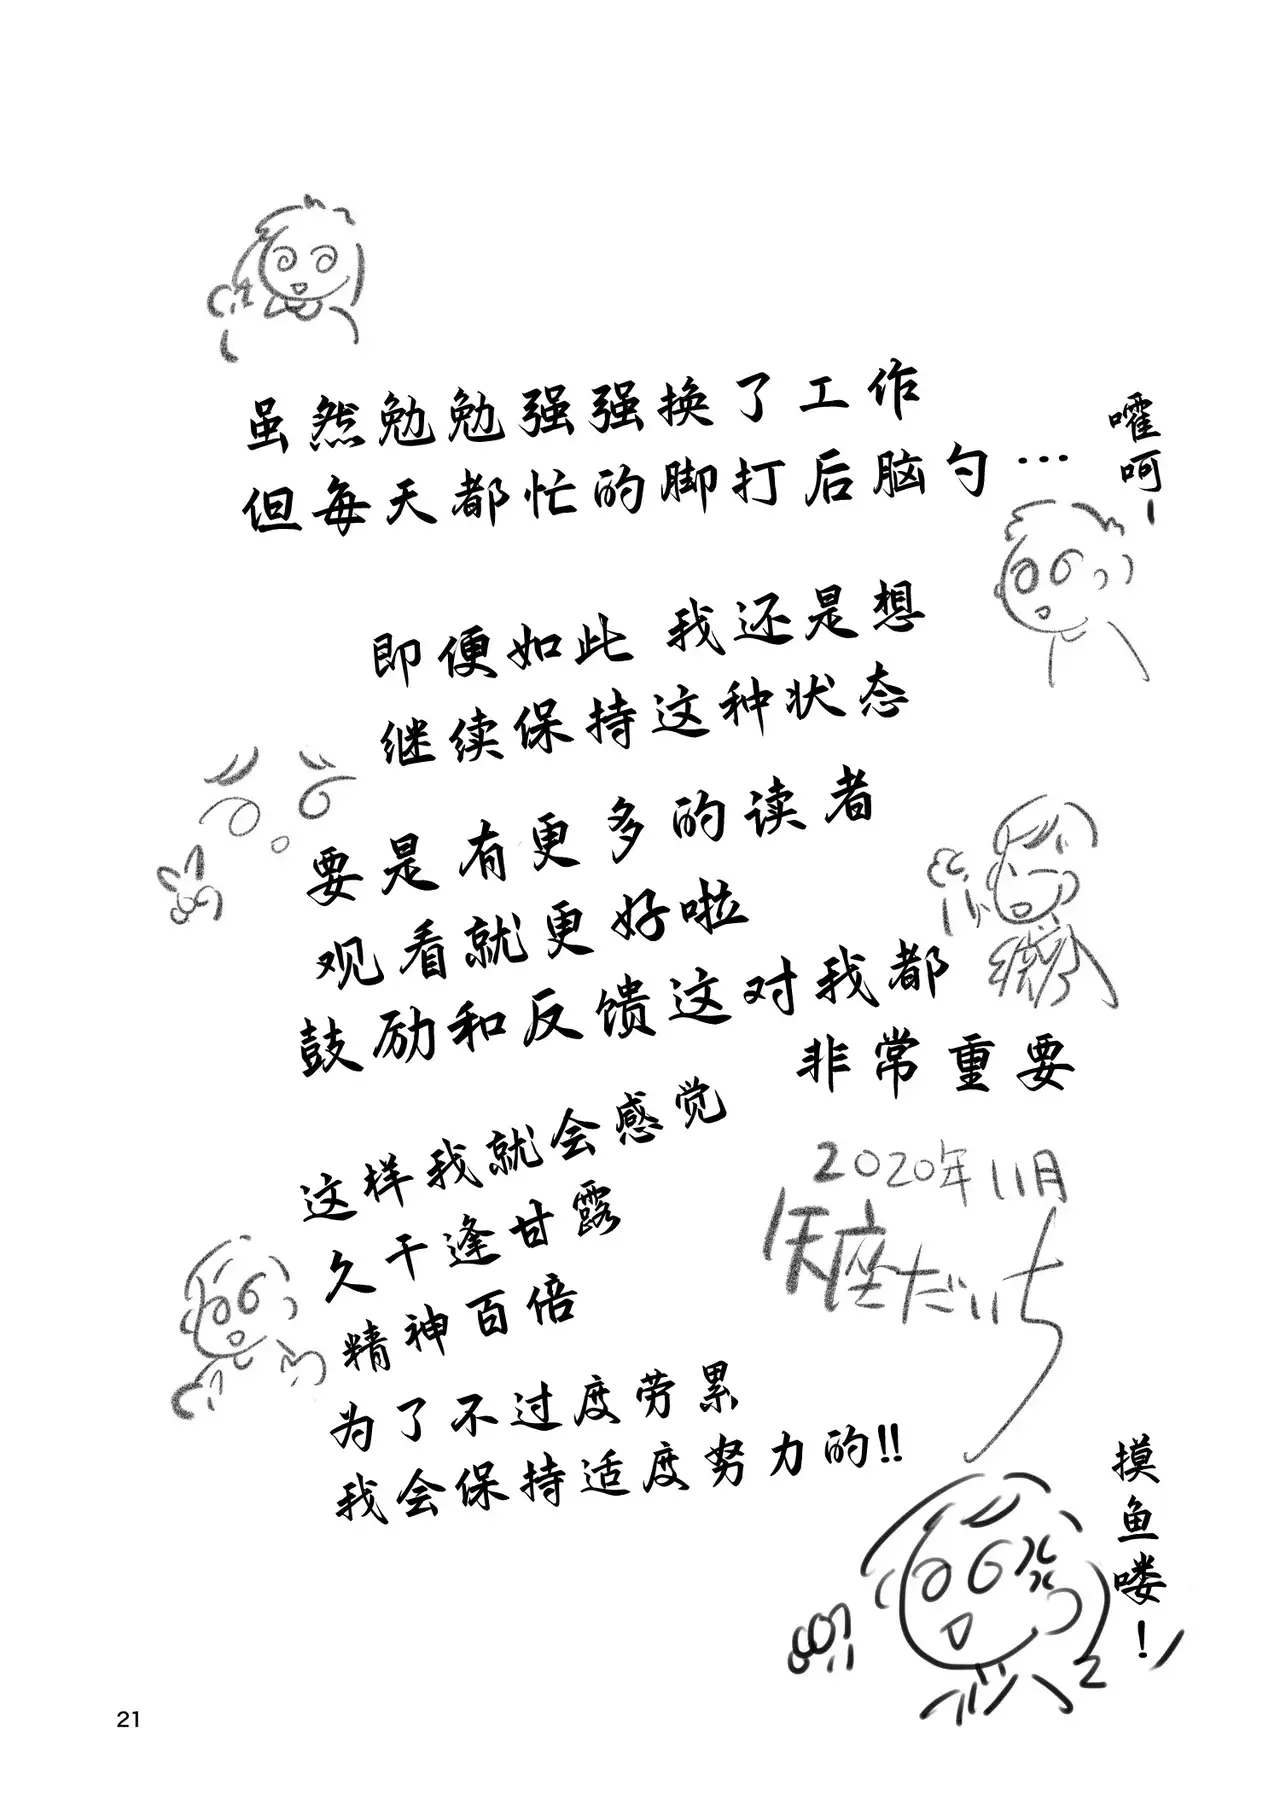 虽然勉勉强强换了工作
但每天都忙的脚打后脑勺…
嚯呵~
即便如此 我还是想
继续保持这种状态
要是有更多的读者
观看就更好啦
鼓励和反馈这对我都
非常重要
这样我就会感觉
久干逢甘露
精神百倍
为了不过度劳累
我会保持适度努力的!!
2020年11月
矢座だいち
摸鱼喽！
21